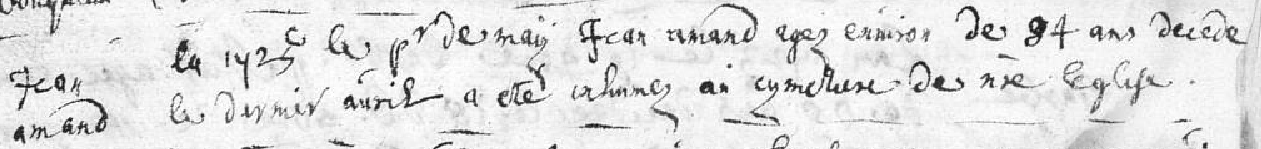 Jean
amand
la 1725 le pr de maij Jean amand agez environ de 84 ans decede
le dernier auril a eté inhumez au cymettiere de nre Eglise .